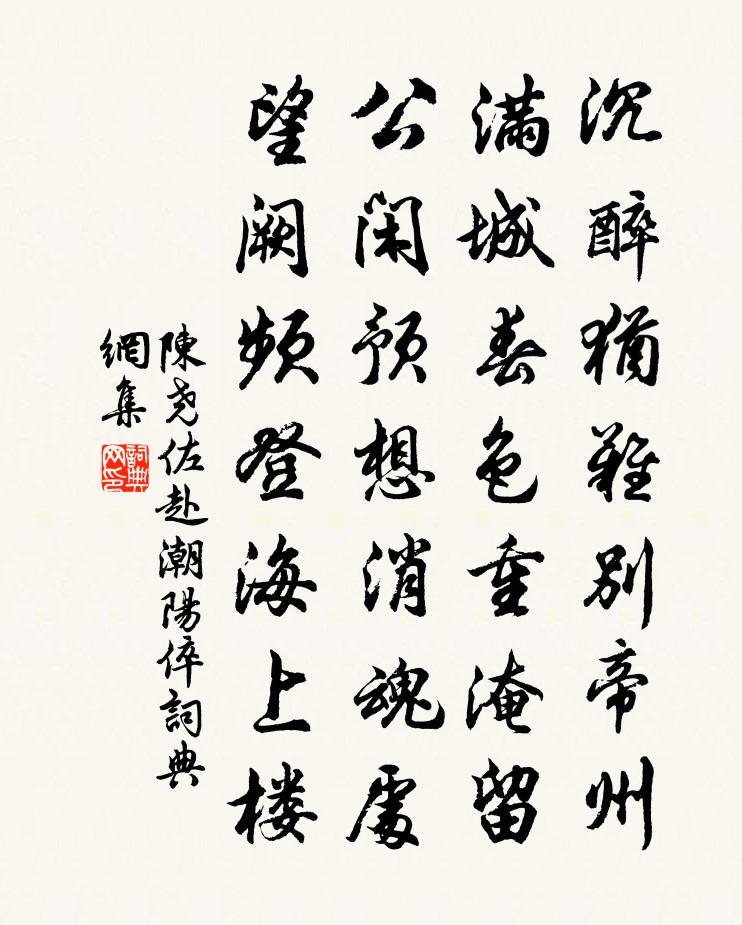 沉醉猶難別帝州
滿城春色重淹留
公閑預想消魂處
望闕頻登海上楼
陳尧佐赴潮陽倅詞典
網集
詞典
网印